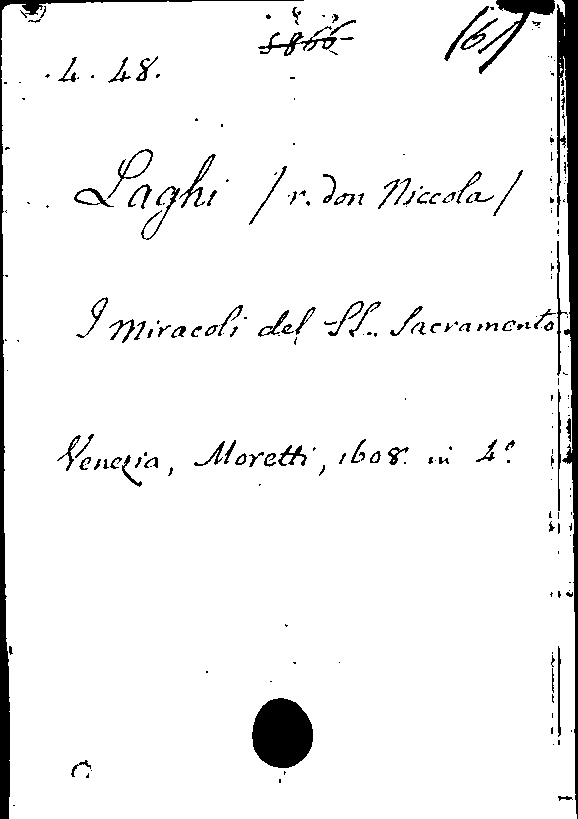 5866 (61)
.4.48.
Laghi / r. don Niccola /
I Miracoli del SS.. Sacramento.
Venezia, Moretti, 1608. in 4º.